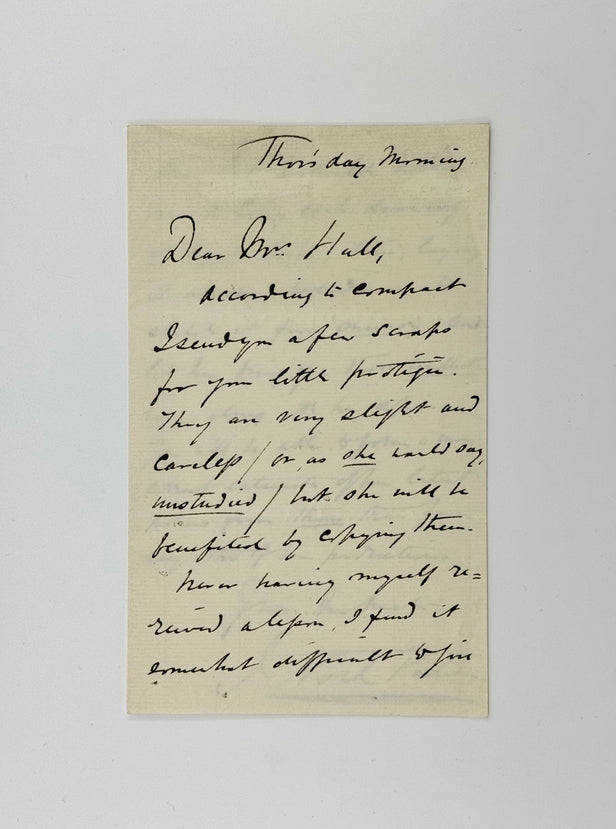 Thursday Morning
Dear Mrs. Hall,
According to compact
I send you a few scraps
for your little protégée.
They are very slight and
careless / or, as she would say,
unstudied / but she will be
benefited by copying them.
Never having myself re=
ceived a lesson, I find it
somewhat difficult to give